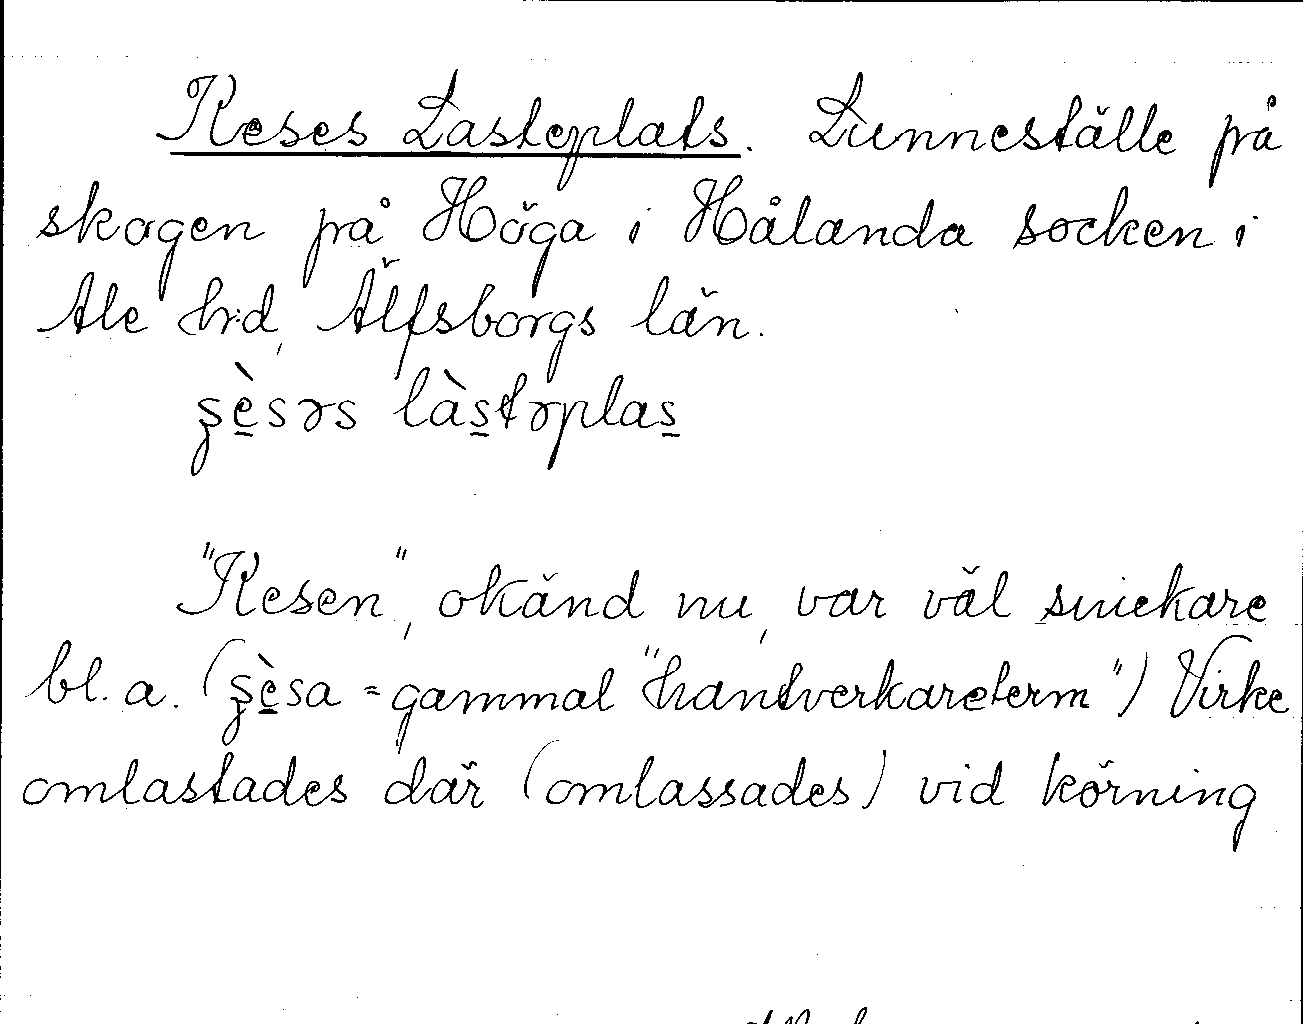 Keses Lasteplats. Lunneställe på
skogen på Höga i Hålanda socken i
Ale hrd, Älfsborgs län.
ʂè̱sɘrs làs̱tɘplas̱
"Kesen", okänd nu, var väl snickare
bl. a. (ʂè̱sa = gammal "handverkareterm") Virke
omlastades där (omlassades) vid körning